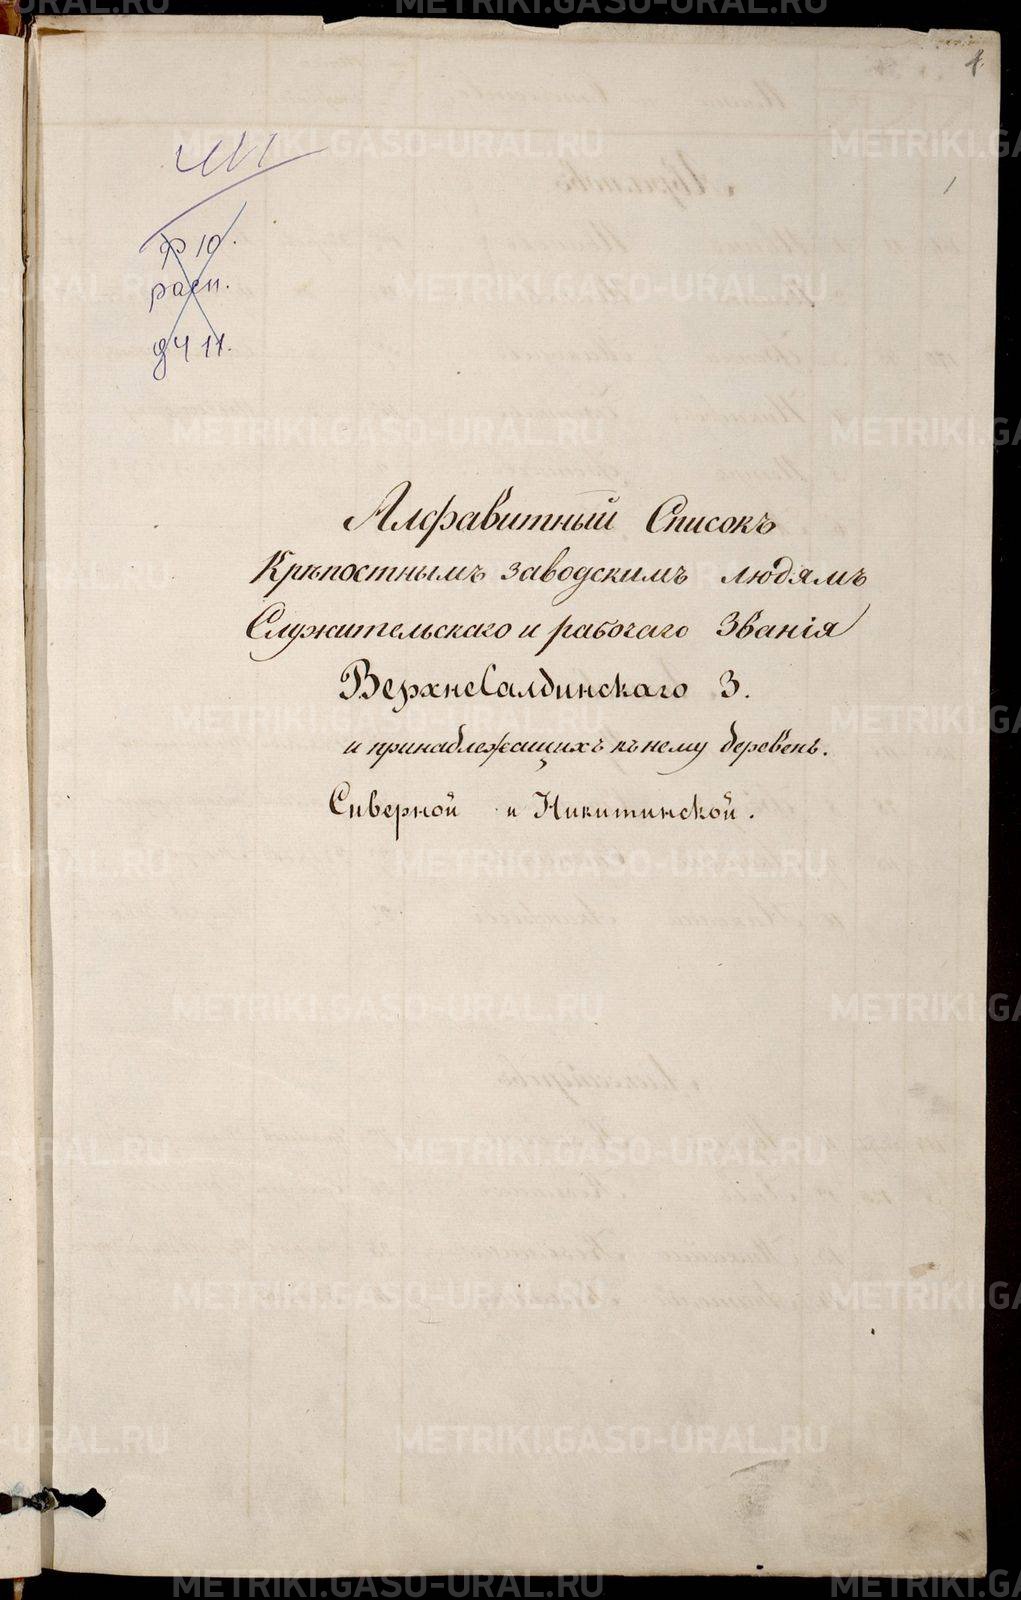 4
1
ф 10.
расп.
д Ч 11.
Алфавитный Списокъ
Крѣпостнымъ заводскимъ людямъ
Служительскаго и рабочаго Званія
ВерхнеСалдинскаго З.
и принадлежащихъ къ нему деревень.
Сѣверной и Никитинской.
METRIKI.GASO-URAL.RU